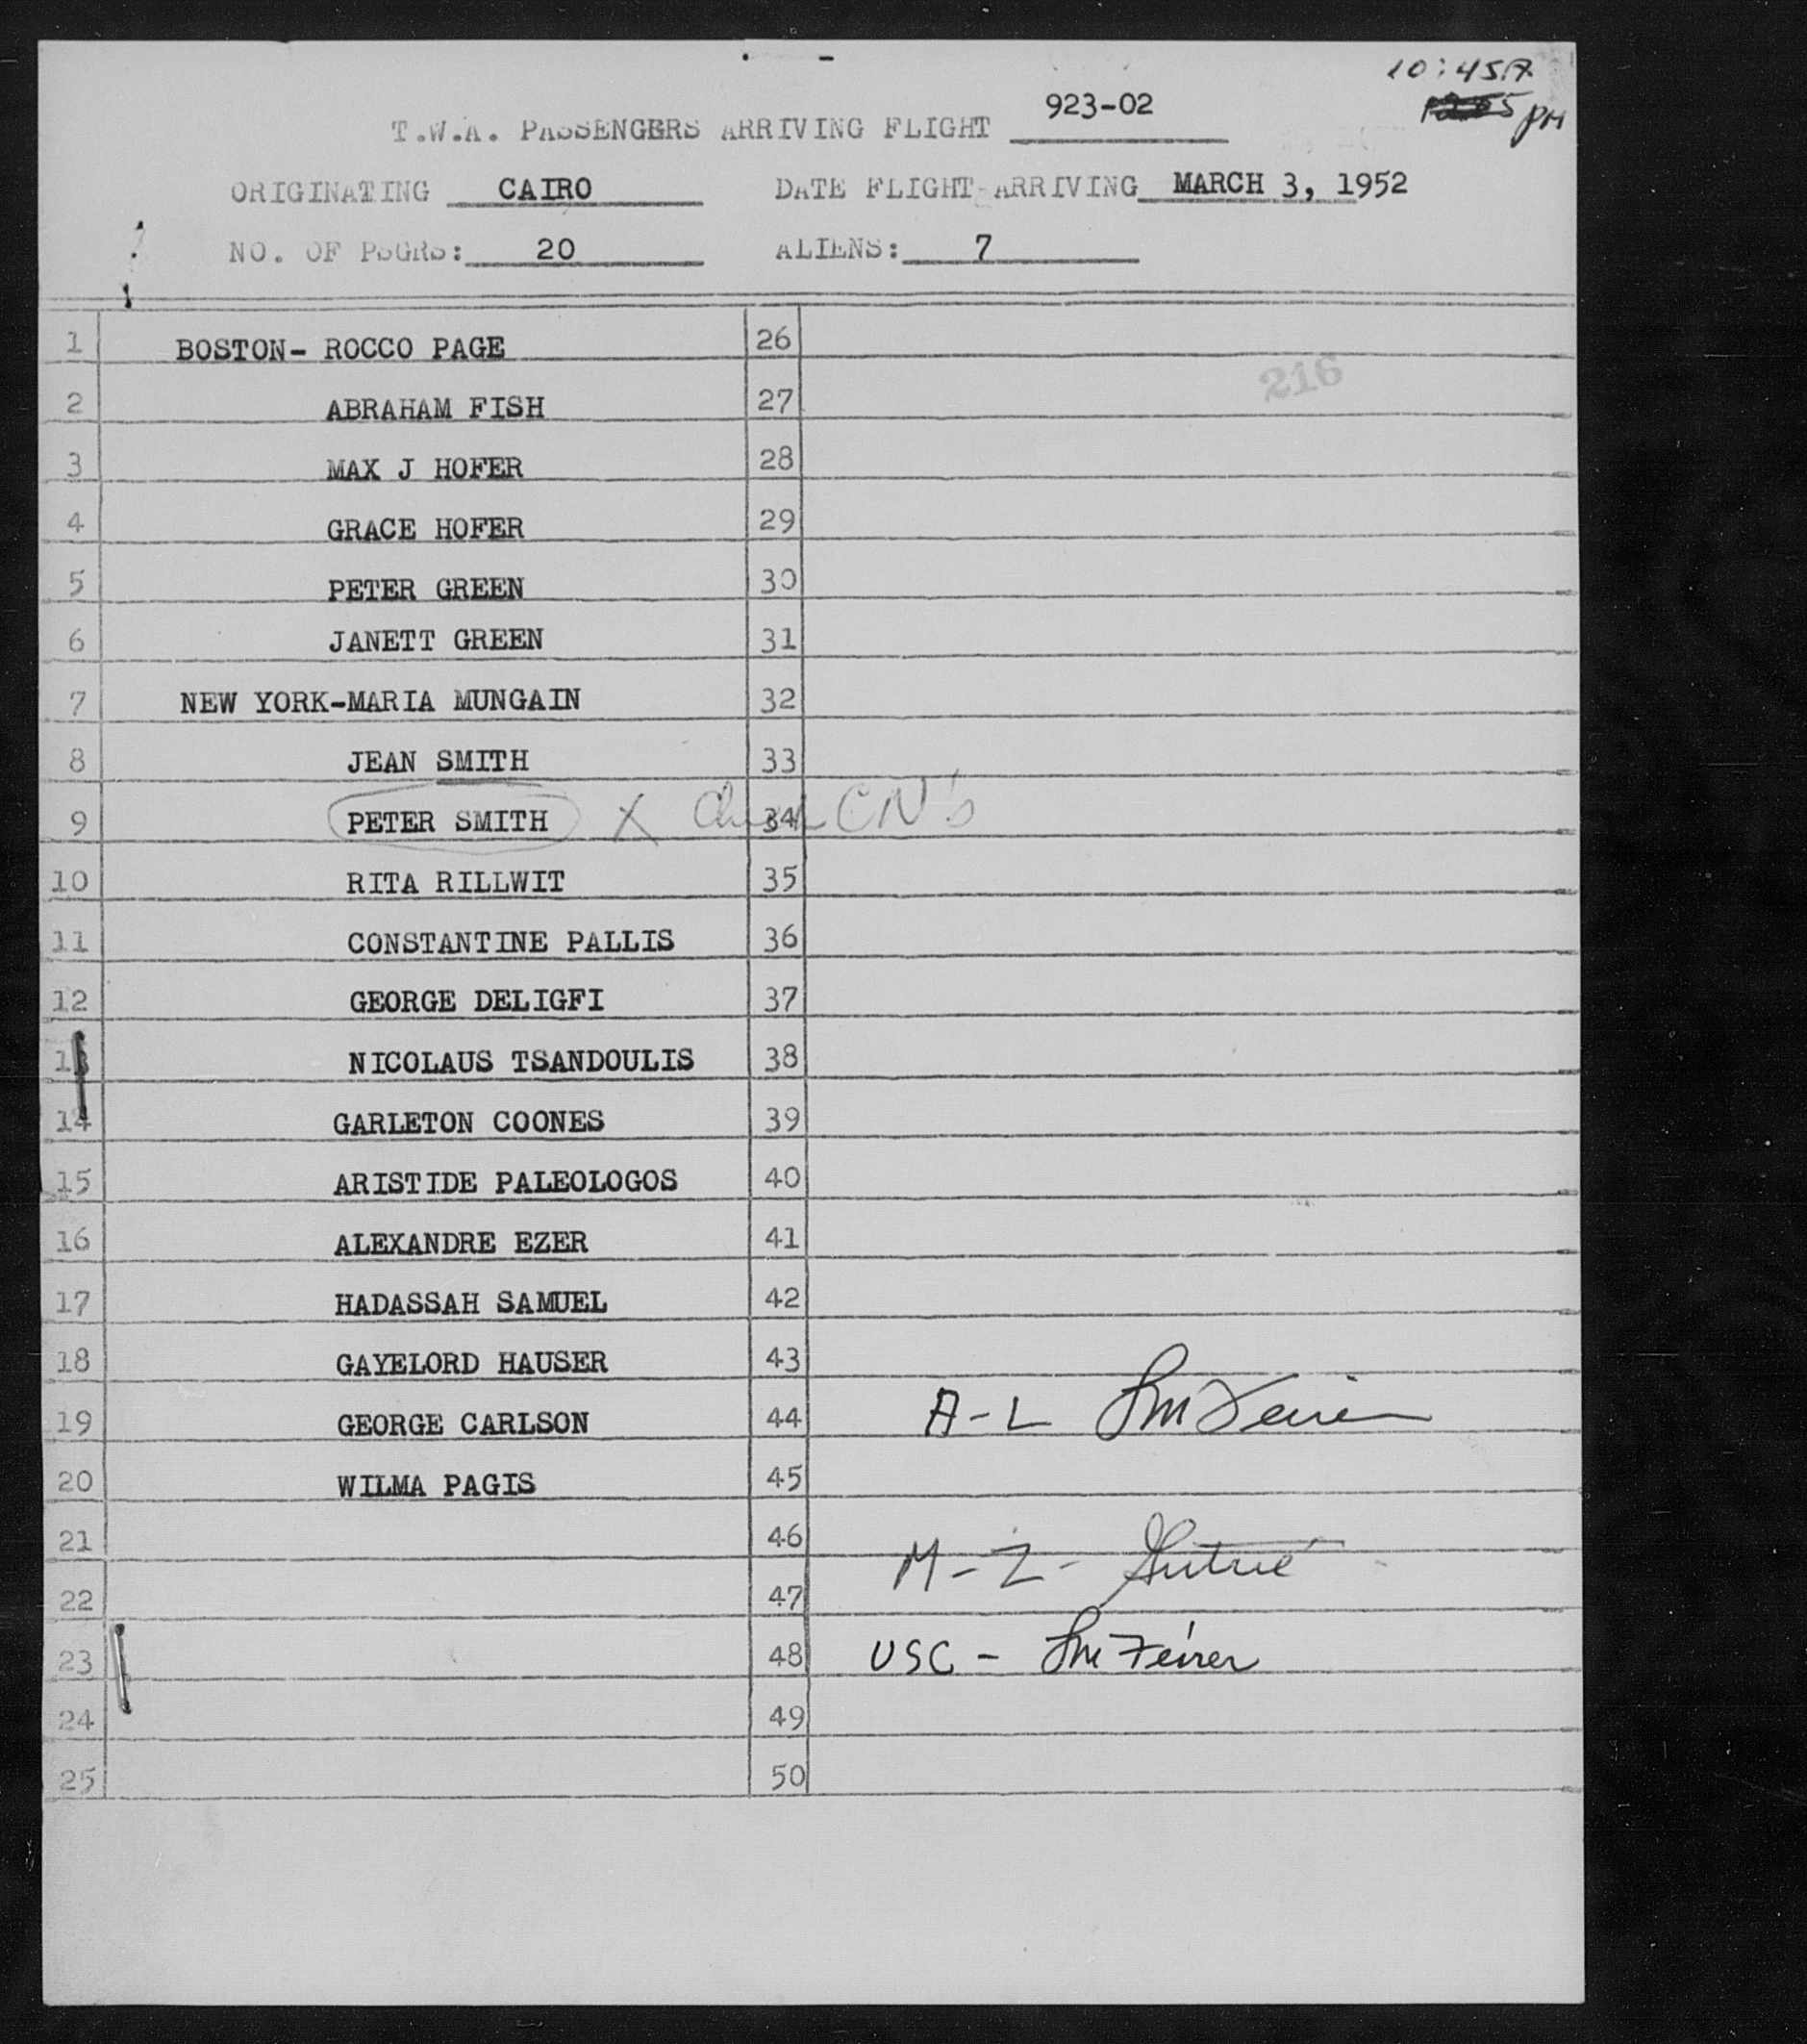 10:45A
PM
T.W.A. PASSENGERS ARRIVING FLIGHT 923-02
ORIGINATING CAIRO DATE FLIGHT ARRIVING MARCH 3, 1952
NO. OF PSGRS: 20 ALIENS: 7
1 BOSTON- ROCCO PAGE 26
216
2 ABRAHAM FISH 27
3 MAX J HOFER 28
4 GRACE HOFER 29
5 PETER GREEN 30
6 JANETT GREEN 31
7 NEW YORK-MARIA MUNGAIN 32
8 JEAN SMITH 33
9 PETER SMITH X Check 34 CN's
10 RITA RILLWIT 35
11 CONSTANTINE PALLIS 36
12 GEORGE DELIGFI 37
13 NICOLAUS TSANDOULIS 38
14 GARLETON COONES 39
15 ARISTIDE PALEOLOGOS 40
16 ALEXANDRE EZER 41
17 HADASSAH SAMUEL 42
18 GAYELORD HAUSER 43
19 GEORGE CARLSON 44 A-L
20 WILMA PAGIS 45
21 46
M-Z-
22 47
23 48 USC -
24 49
25 50